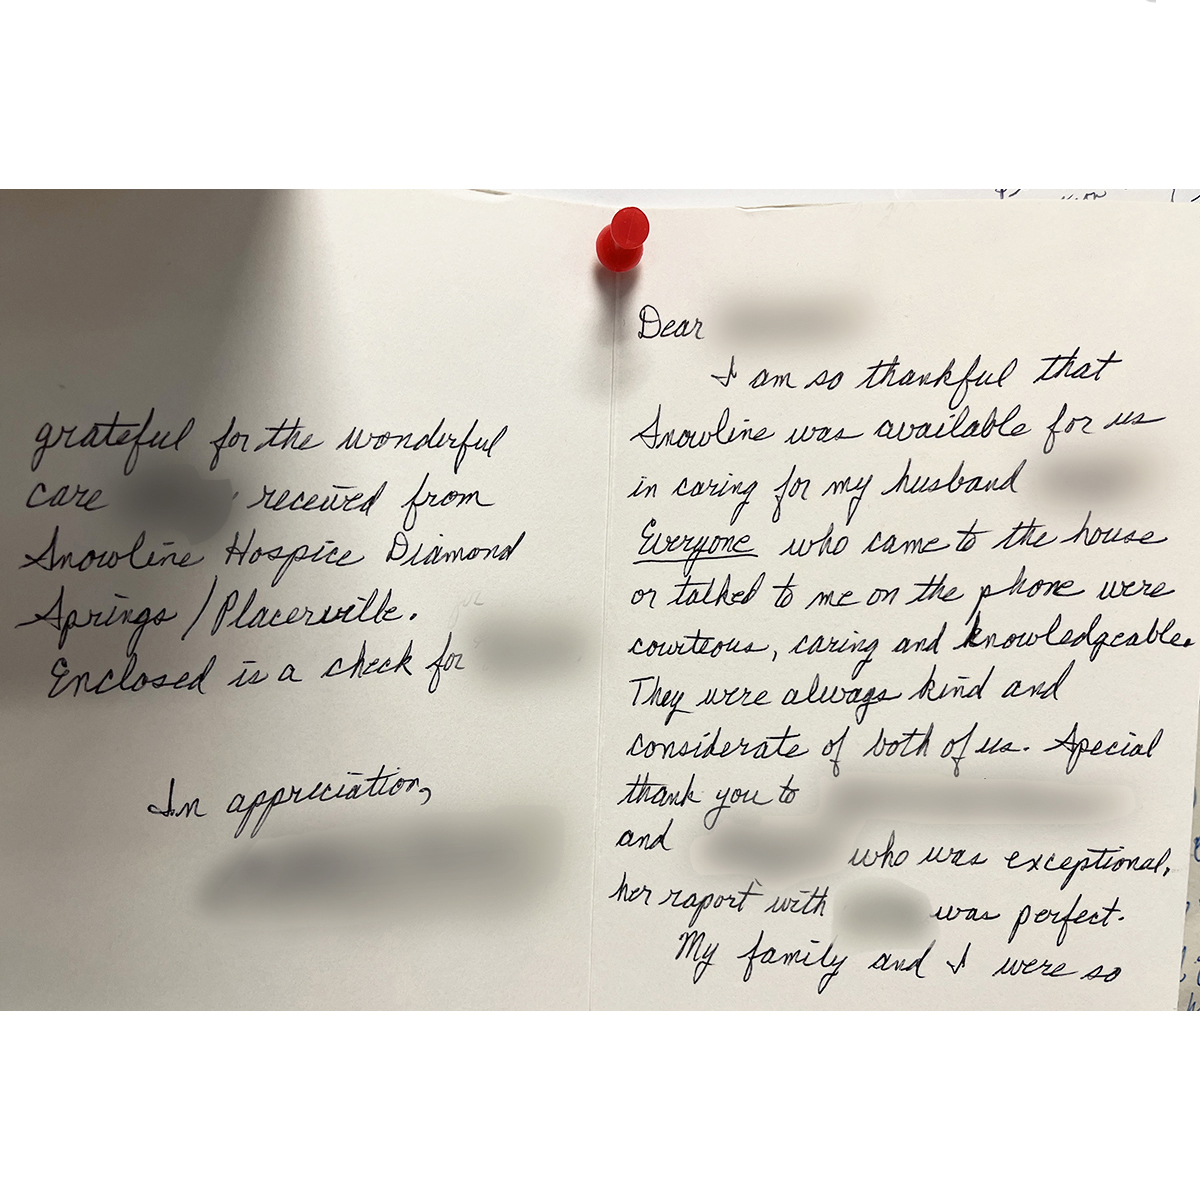 Dear
I am so thankful that
Snowline was available for us
in caring for my husband
Everyone who came to the house
or talked to me on the phone were
courteous, caring and knowledgeable.
They were always kind and
considerate of both of us. Special
thank you to
and who was exceptional,
her raport with was perfect.
My family and I were so
grateful for the wonderful
care received from
Snowline Hospice Diamond
Springs / Placerville.
Enclosed is a check for
In appreciation,